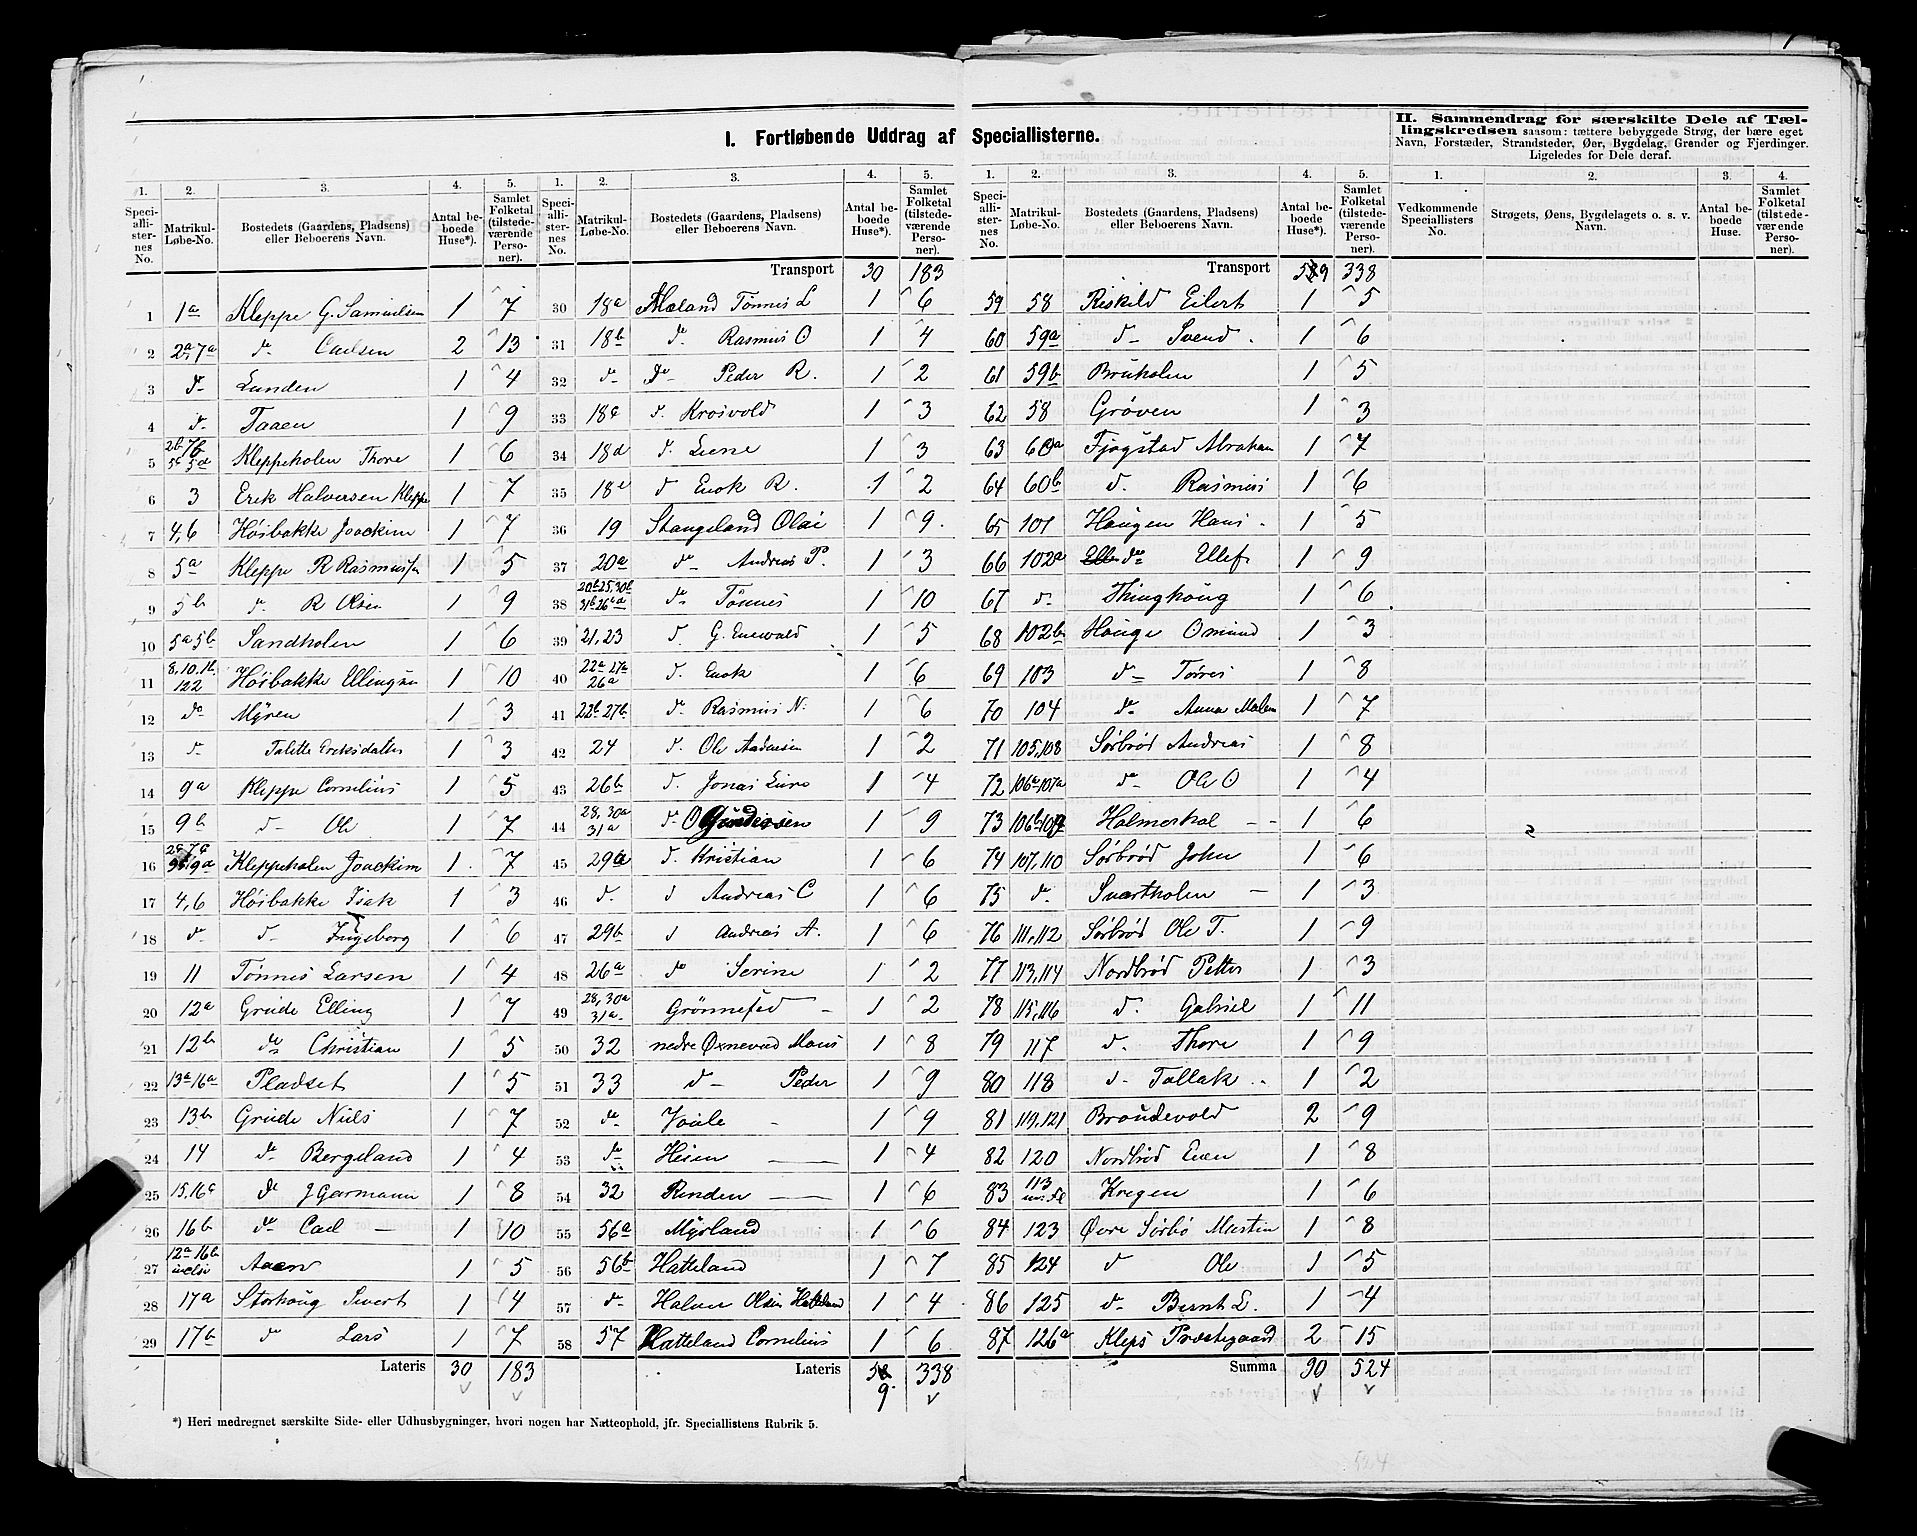 I. Fortløbende Uddrag af Speciallisterne.
II. Sammendrag for særskilte Dele af Tællingskredsen saasom: tættere bebyggede Strøg, der bære eget
Navn, Forstæder, Strandsteder, Øer, Bygdelag, Grender og Fjerdinger.
Ligeledes for Dele deraf.
1. 2. 3. 4. 5. 1. 2. 3. 4. 5. 1. 2. 3. 4. 5. 1. 2. 3. 4.
Speciallisternes No. Matrikul-Løbe-No. Bostedets (Gaardens, Pladsens) eller Beboerens Navn. Antal beboede Huse*). Samlet Folketal (tilstedeværende Personer).
Speciallisternes No. Matrikul-Løbe-No. Bostedets (Gaardens, Pladsens) eller Beboerens Navn. Antal beboede Huse*). Samlet Folketal (tilstedeværende Personer).
Speciallisternes No. Matrikul-Løbe-No. Bostedets (Gaardens, Pladsens) eller Beboerens Navn. Antal beboede Huse*). Samlet Folketal (tilstedeværende Personer).
Vedkommende Speciallisters No. Strøgets, Øens, Bygdelagets o. s. v. Navn. Antal beboede Huse. Samlet Folketal (tilstedeværende Personer).
1 1a Kleppe G. Samuelsen 1 7
2 2a 7a do Carlsen 2 13
3 do Lunden 1 4
4 do Taaen 1 9
5 2b 7b 5c 5d Kleppeholen Thore 1 6
6 3 Erik Halvorsen Kleppe 1 7
7 4,6 Höibakke Joackim 1 7
8 5a Kleppe R Rasmussen 1 5
9 5b do R Olsen 1 9
10 5a 5b Sandholen 1 6
11 8,10.1b 122 Höibakke Ellingsen 1 10
12 do Myren 1 3
13 do Talette Eriksdatter 1 3
14 9a Kleppe Cornelius 1 5
15 9b do Ole 1 7
16 Kleppeholen Joackim 1 7
17 4,6 Höibakke Isak 1 3
18 do do Ingeborg 1 6
19 11 Tönnes Larsen 1 4
20 12a Grude Elling 1 7
21 12b do Christian 1 5
22 13a 16a Pladset 1 5
23 13b Grude Niels 1 7
24 14 do Bergeland 1 4
25 15,16c do J Garmann 1 8
26 16b do Carl 1 10
27 12a 16b Aaen 1 5
28 17a Storhoug Sivert 1 4
29 17b do Lars 1 7
Lateris 30 183
Transport 30 183
30 18a Mæland Tönnes L 1 6
31 18b do Rasmus O 1 4
32 do do Peder R. 1 2
33 18c do Krosvold 1 3
34 18d do Lene 1 3
35 18e do Enok R. 1 2
36 19 Stangeland Olai 1 9
37 20a do Andreas P. 1 3
38 20b 25,30b 31b 26 do Tönnes 1 10
39 21,23 do G. Enevald 1 5
40 22a 27a 26a do Enok 1 6
41 22b 27b do Rasmus N. 1 6
42 24 do Ole Andersen 1 2
43 26b do Jonas Lure 1 4
44 28,30a 31a do O Gundersen 1 9
45 29a do Kristian 1 6
46 do do Andreas C 1 6
47 29b do Andreas A. 1 6
48 26a do Serine 1 2
49 28,30a 31a Grönnestad 1 2
50 32 nedre Öxnevad Mons 1 8
51 33 do Peder 1 9
52 do Voule 1 9
53 do Heien 1 4
54 32 Rinden 1 6
55 56a Myrland 1 6
56 56b Hatteland 1 7
57 do Halvor Olsen Hatteland 1 4
58 57 Hatteland Cornelius 1 6
Lateris 59 338
Transport 59 338
59 58 Riskild Eilert 1 5
60 59a do Svend 1 6
61 59b Bruholen 1 5
62 58 Gröven 1 3
63 60a Fjogstad Abraham 1 7
64 60b do Rasmus 1 6
65 101 Haugen Hans 1 5
66 102a do Ellef 1 9
67 do Thinghoug 1 6
68 102b Houge Omund 1 3
69 103 do Torres 1 8
70 104 do Anna Malene 1 7
71 105,108 Sörbröd Andreas 1 8
72 106a 107a do Ole O 1 4
73 106b 109 Holmerhal 1 6
74 107,110 Sörbröd John 1 6
75 do Svartholen 1 3
76 111,112 Sörbröd Ole T. 1 9
77 113,114 Nordbröd Petter 1 3
78 115,116 do Gabriel 1 11
79 117 do Thore 1 9
80 118 do Tollak 1 2
81 119,121 Broudevold 2 9
82 120 Nordbröd Even 1 8
83 113 Kregen 1 6
84 123 Övre Sörbö Martin 1 8
85 124 do Ole 1 5
86 125 do Bernt L. 1 4
87 126a Kleps Præstegaard 2 15
Summa 90 524
*) Heri medregnet særskilte Side- eller Udhusbygninger, hvori nogen har Natteophold, jfr. Speciallistens Rubrik 5.
524